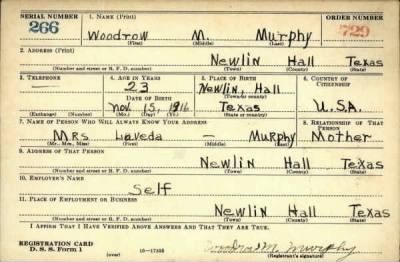 SERIAL NUMBER 1. NAME (Print) ORDER NUMBER
266 Woodrow M. Murphy 729
(First) (Middle) (Last)
2. ADDRESS (Print)
Newlin Hall Texas
(Number and street or R. F. D. number) (Town) (County) (State)
3. TELEPHONE 4. AGE IN YEARS 5. PLACE OF BIRTH 6. COUNTRY OF CITIZENSHIP
— 23 Newlin, Hall
DATE OF BIRTH (Town or county)
Nov. 15, 1916 Texas U.S.A.
(Exchange) (Number) (Mo.) (Day) (Yr.) (State or country)
7. NAME OF PERSON WHO WILL ALWAYS KNOW YOUR ADDRESS 8. RELATIONSHIP OF THAT PERSON
Mrs Laveda — Murphy Mother
(Mr., Mrs., Miss) (First) (Middle) (Last)
9. ADDRESS OF THAT PERSON
Newlin Hall Texas
(Number and street or R. F. D. number) (Town) (County) (State)
10. EMPLOYER'S NAME
Self
11. PLACE OF EMPLOYMENT OR BUSINESS
Newlin Hall Texas
(Number and street or R. F. D. number) (Town) (County) (State)
I AFFIRM THAT I HAVE VERIFIED ABOVE ANSWERS AND THAT THEY ARE TRUE.
REGISTRATION CARD
D. S. S. Form 1 (over) 16—17105 Woodrow M. Murphy
(Registrant's signature)